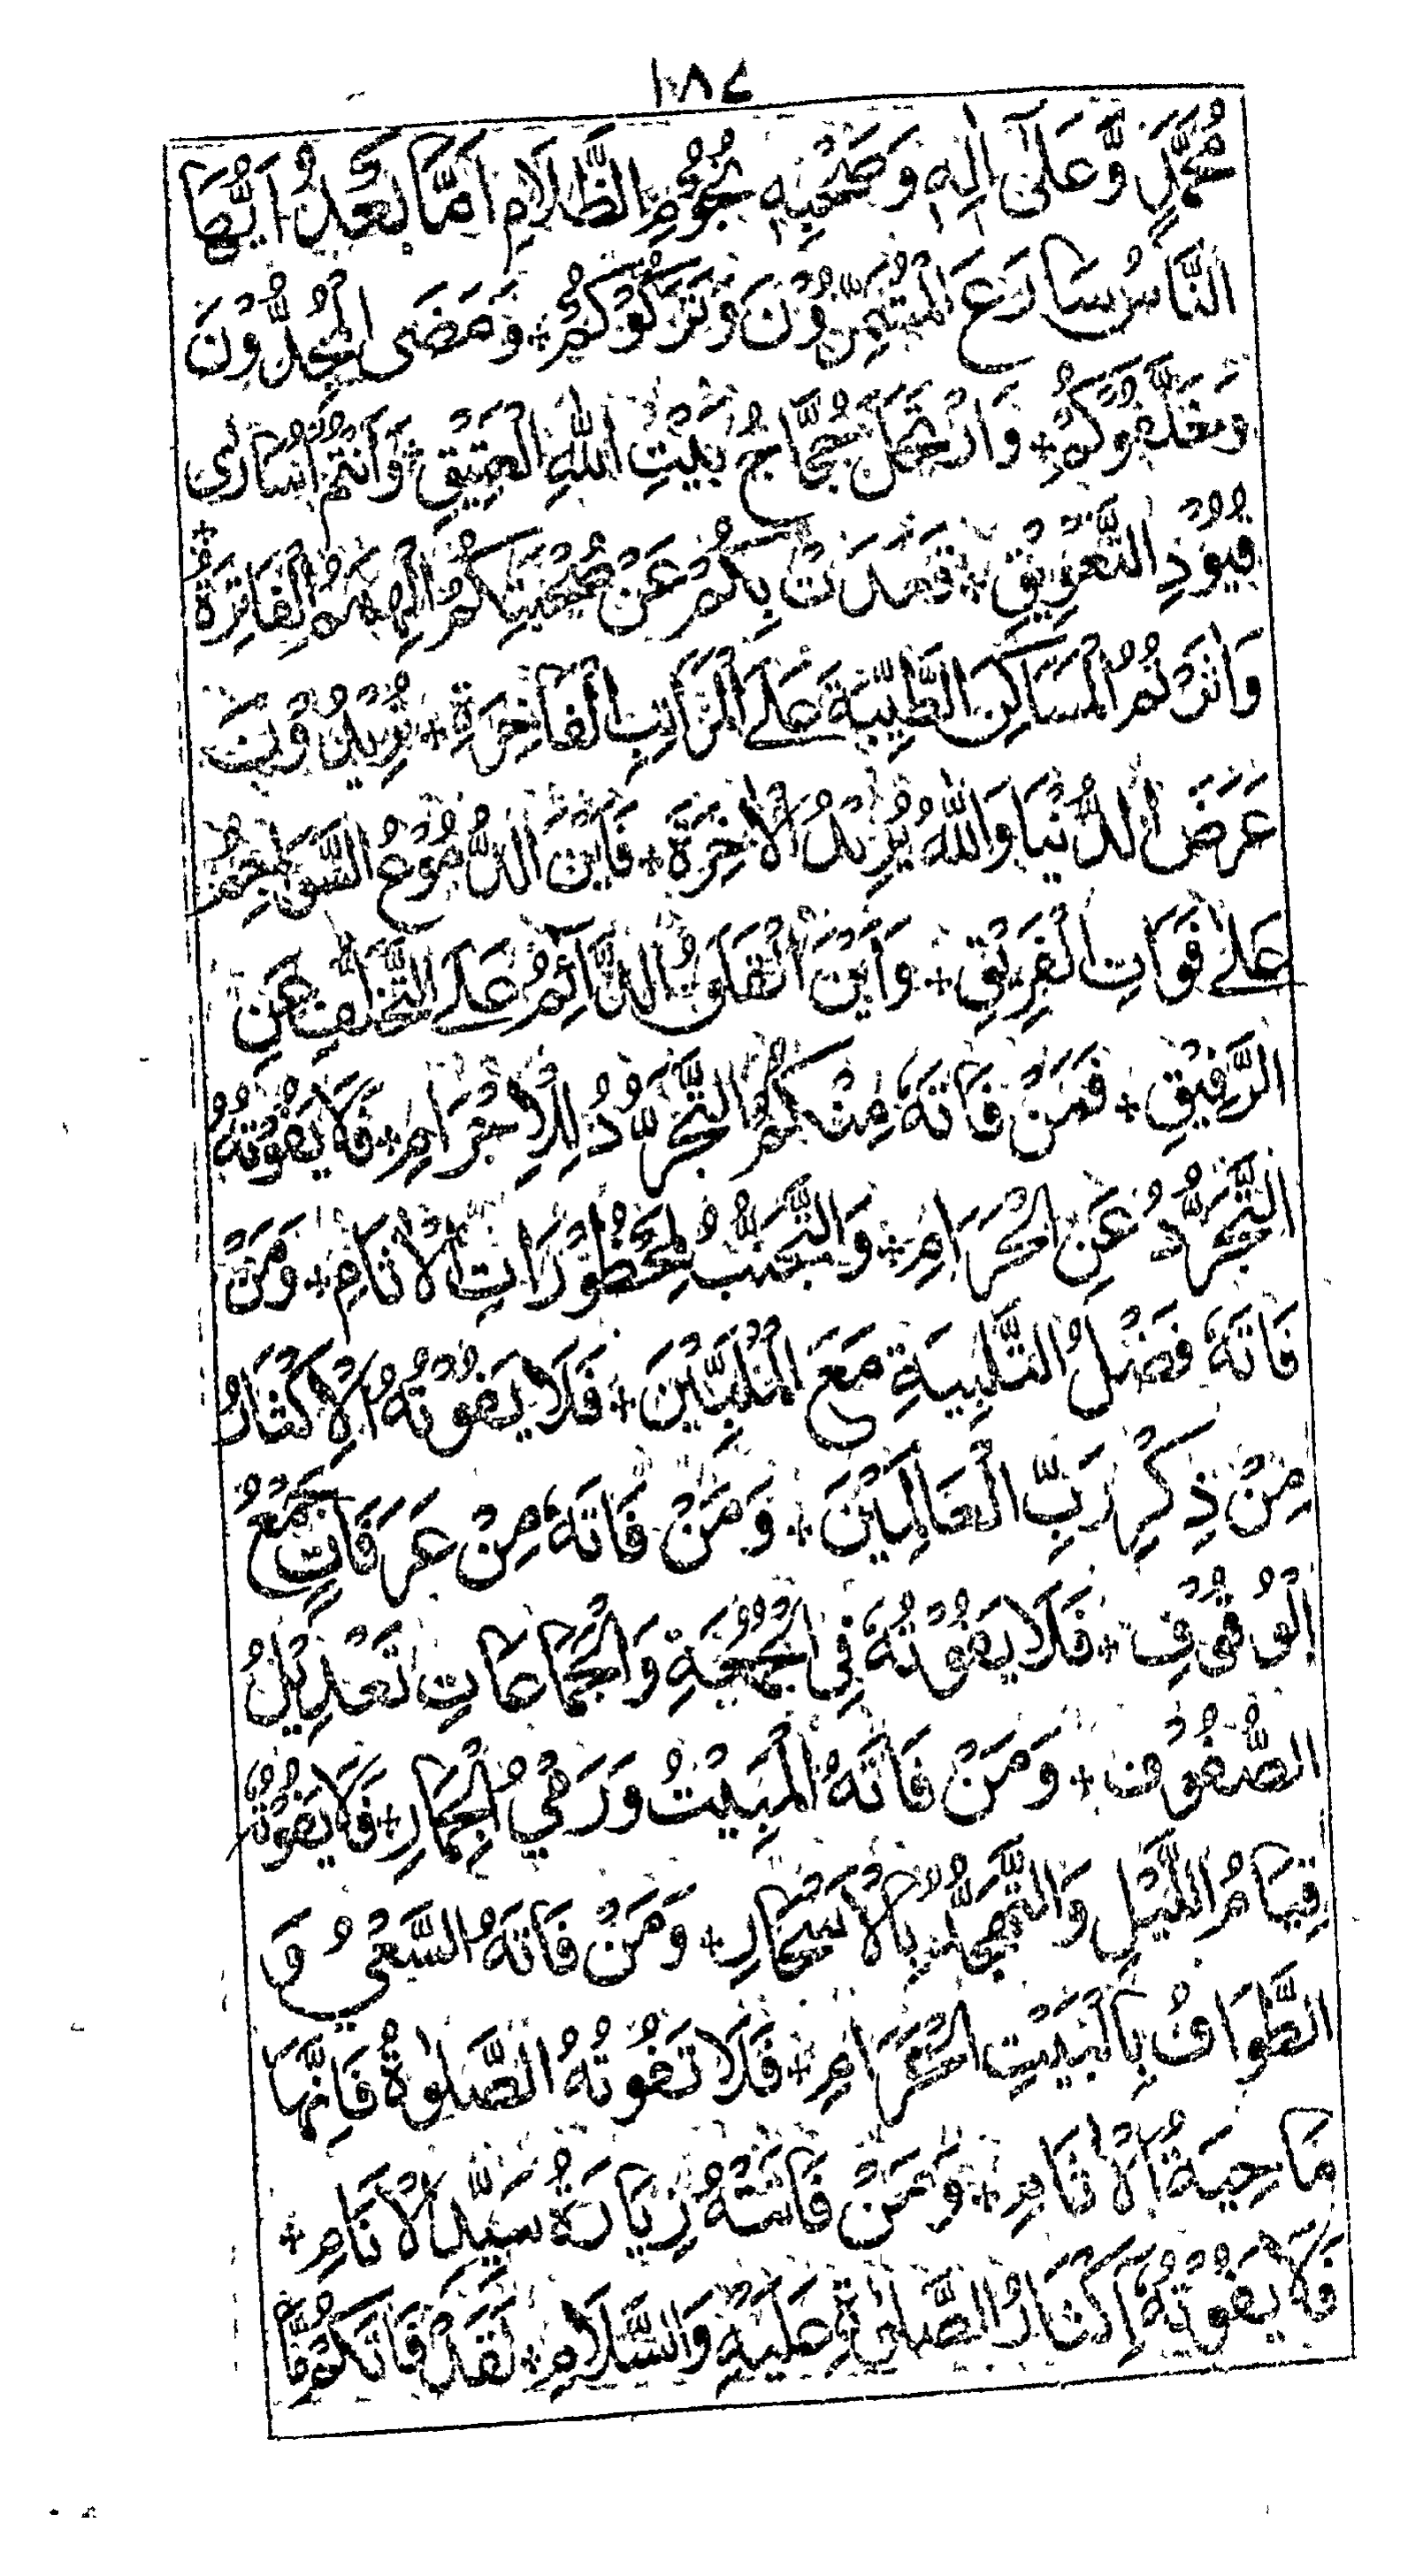 ١٨٤
مُحَمَّدٍ وَّعَلٰى اٰلِهٖ وَصَحْبِهٖ نُجُوْمِ الظَّلَامِ اَمَّا بَعْدُ اَيُّهَا
النَّاسُ سَارَعَ الْمُتَشَمِّرُوْنَ وَتَرَكُوْكُمْ + وَمَضَى الْمُجِدُّوْنَ
وَخَلَّفُوْكُمْ + وَارْتَحَلَ حُجَّاجُ بَيْتِ اللّٰهِ الْعَتِيْقِ + وَاَنْتُمْ اُسَارٰى
قُيُوْدِ التَّعْوِيْقِ + قَعَدَتْ بِكُمْ عَنْ صُحْبَتِكُمُ الْهِمَمُ الْفَاتِرَةُ +
وَاٰثَرْتُمُ الْمَسَاكِنَ الطَّيِّبَةَ عَلَى الْمَرَاتِبِ الْفَاخِرَةِ + تُرِيْدُوْنَ
عَرَضَ الدُّنْيَا وَاللّٰهُ يُرِيْدُ الْاٰخِرَةَ + فَاَيْنَ الدُّمُوْعُ السَّوَاجِمُ
عَلٰى فَوَاتِ الْفَرِيْقِ + وَاَيْنَ الْقَلَقُ الدَّائِمُ عَلَى التَّخَلُّفِ عَنِ
الرَّفِيْقِ + فَمَنْ فَاتَهٗ مِنْكُمُ التَّجَرُّدُ لِلْاِحْرَامِ + فَلَا يَفُوْتُهُ
التَّجَرُّدُ عَنِ الْحَرَامِ + وَالتَّجَنُّبُ لِمَحْظُوْرَاتِ الْاٰثَامِ + وَمَنْ
فَاتَهٗ فَضْلُ التَّلْبِيَةِ مَعَ الْمُلَبِّيْنَ + فَلَا يَفُوْتُهُ الْاِكْثَارُ
مِنْ ذِكْرِ رَبِّ الْعَالَمِيْنَ + وَمَنْ فَاتَهٗ مِنْ عَرَفَاتٍ جَمْعُ
الْوُقُوْفِ + فَلَا يَفُوْتُهٗ فِى الْجُمُعَةِ وَالْجَمَاعَاتِ تَعْدِيْلُ
الصُّفُوْفِ + وَمَنْ فَاتَهُ الْمَبِيْتُ وَرَمْيُ الْجِمَارِ + فَلَا يَفُوْتُهٗ
قِيَامُ اللَّيْلِ وَالتَّهَجُّدُ بِالْاَسْحَارِ + وَمَنْ فَاتَهُ السَّعْيُ وَ
الطَّوَافُ بِالْبَيْتِ الْحَرَامِ + فَلَا تَفُوْتُهُ الصَّلٰوةُ فَاِنَّهَا
مَاحِيَةُ الْاٰثَامِ + وَمَنْ فَاتَتْهُ زِيَارَةُ سَيِّدِ الْاَنَامِ +
فَلَا يَفُوْتُهٗ اِكْثَارُ الصَّلٰوةِ عَلَيْهِ وَالسَّلَامِ + لَقَدْ فَاتَكُمْ مَّا